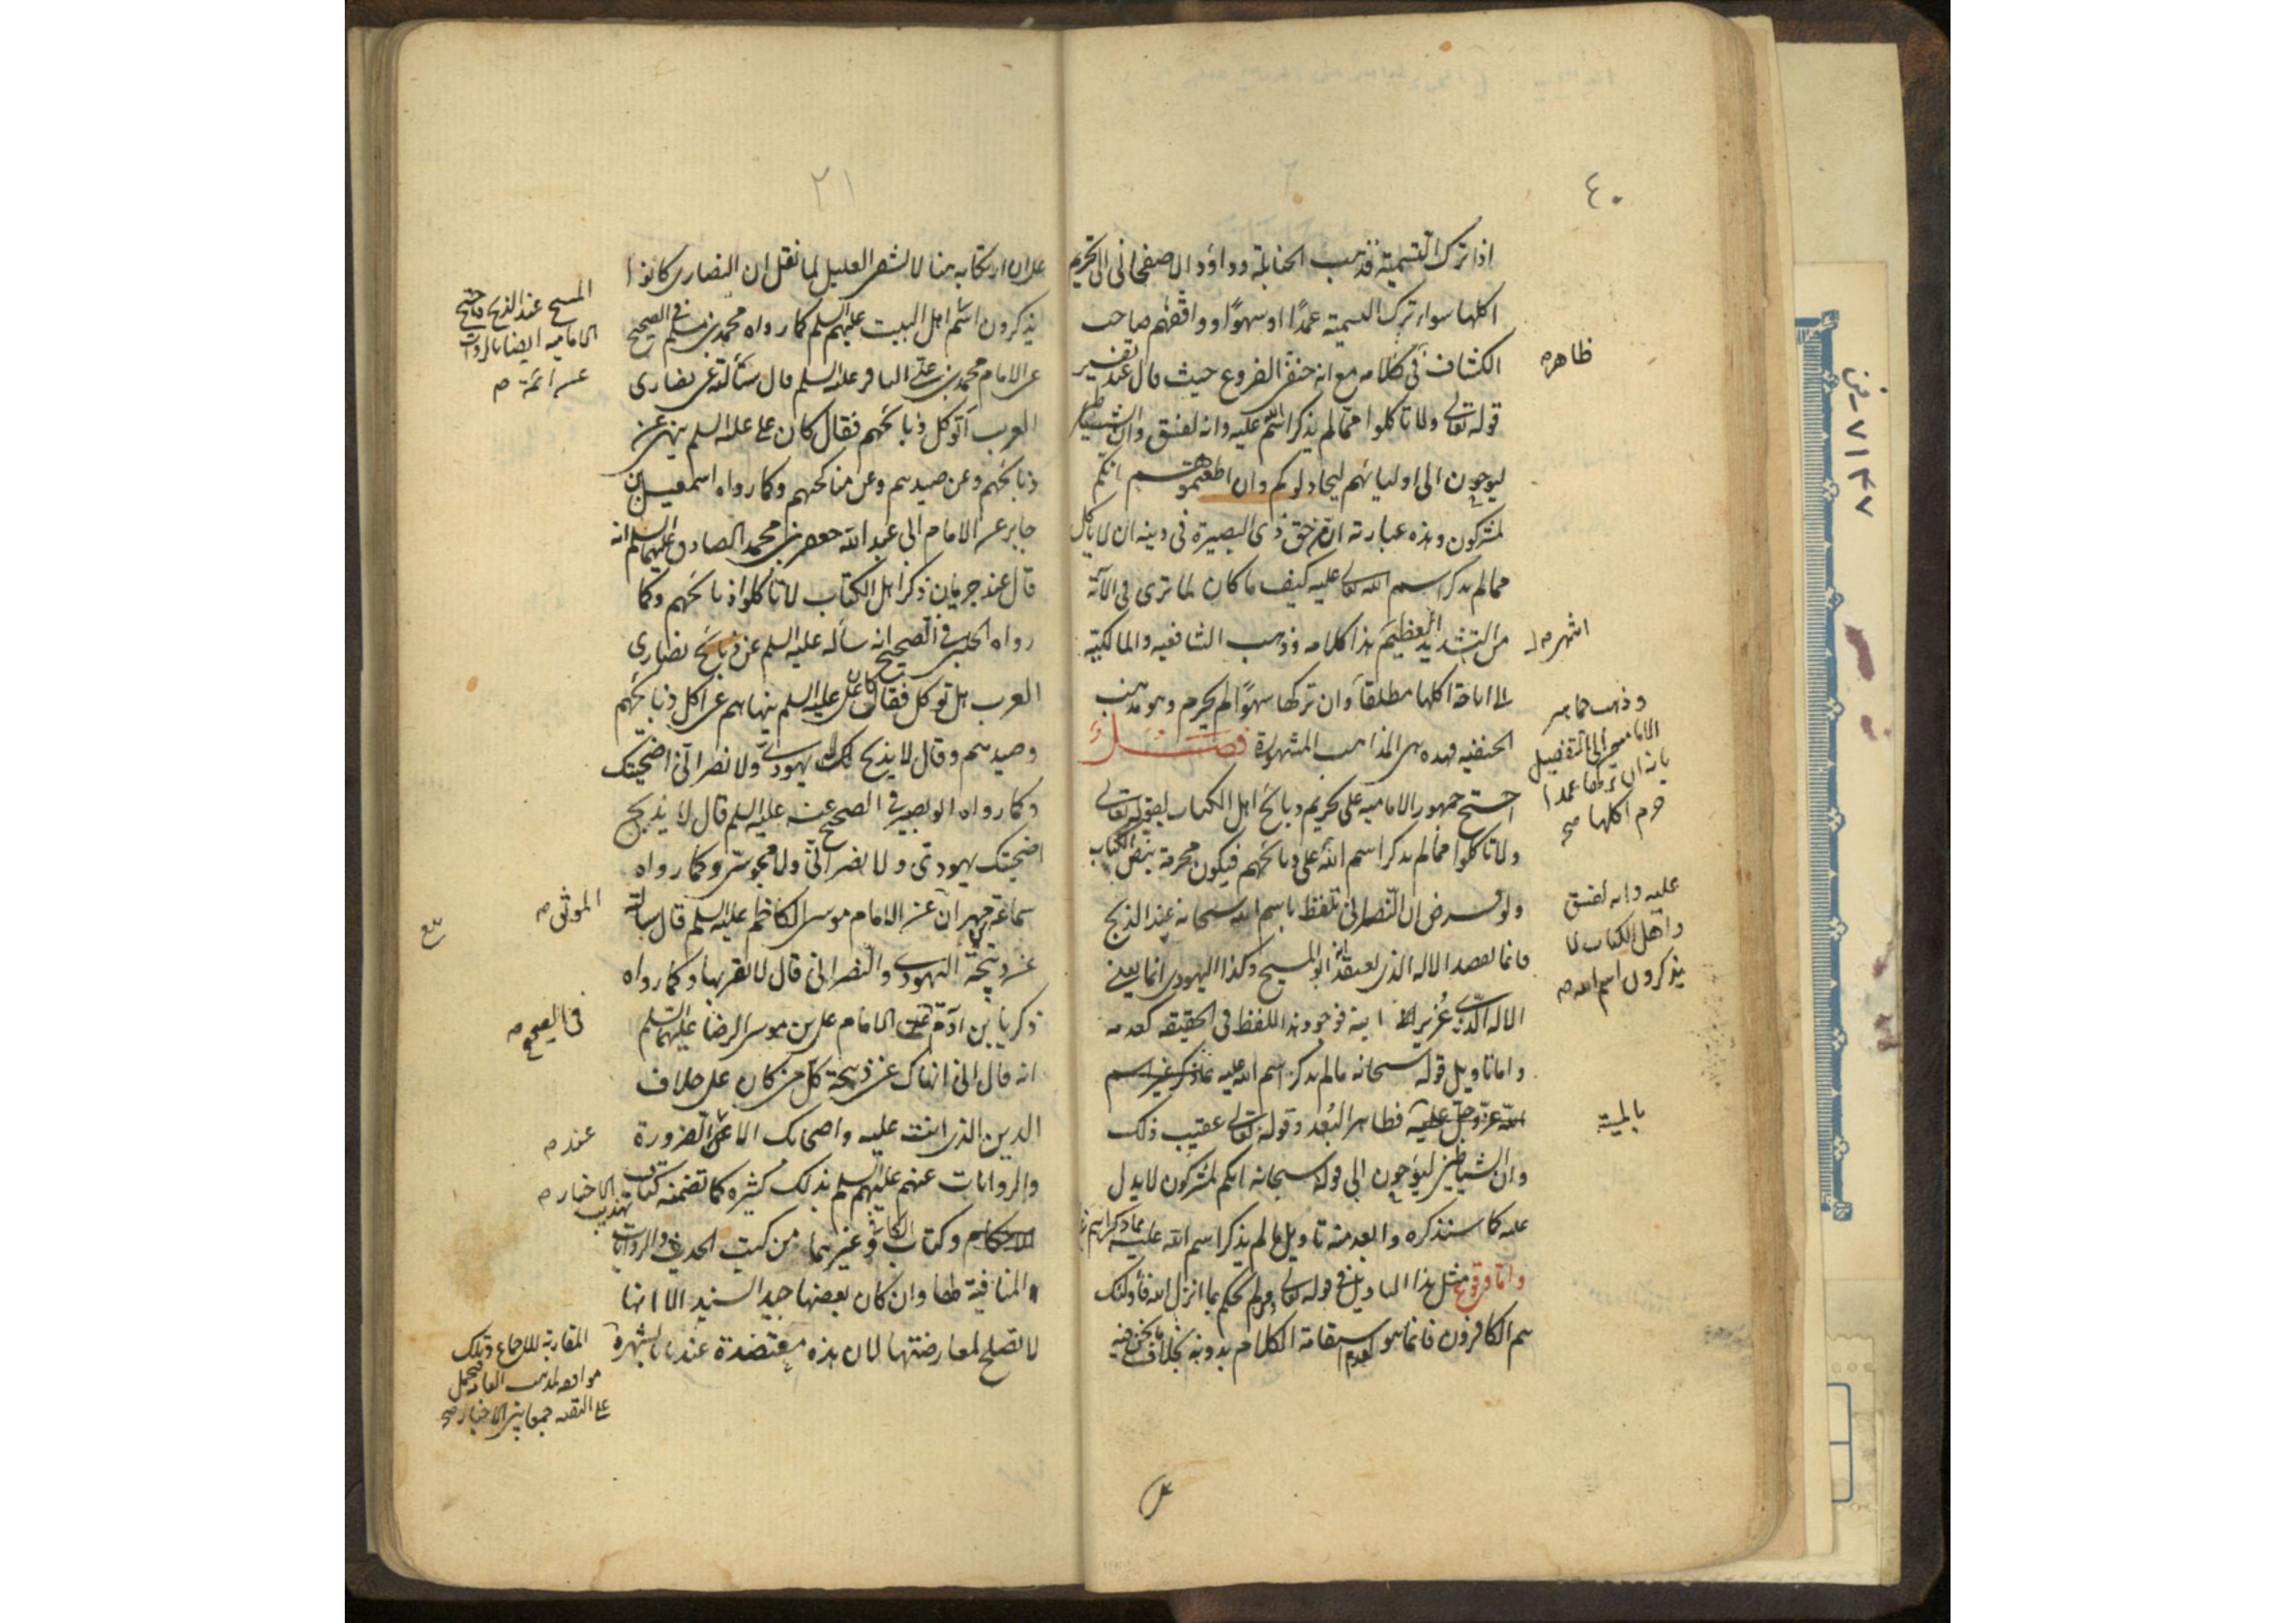 ٤٠
اذا ترك التسمية فذهب الحنابلة وداؤد الاصفهانى الى تحريم
اكلها سواء ترك التسمية عمدًا او سهوًا ووافقهم صاحب
الكشاف فى كلامه مع انه حنفى الفروع حيث قال عند تفسير
ظاهر
قوله تعالى ولا تاكلوا مما لم يذكر اسم الله عليه وانه لفسق وان الشياطين
ليوحون الى اوليائهم ليجادلوكم وان اطعتموهم انكم
لمشركون وهذه عبارته ان من حق ذى البصيرة فى دينه ان لا ياكل
مما لم يذكر اسم الله تعالى عليه كيف ما كان لما ترى فى الآية
من التشديد العظيم هذا كلامه وذهب الشافعيه والمالكية
اشهر
الى اباحة اكلها مطلقا وان تركها سهوًا لم يحرم وهو مذهب
وذهب جماهير
الامامية الى التفصيل
بانه ان تركها عمدا
حرم اكلها صح
الحنفيه فهذه هى المذاهب المشهورة فصل
احتج جمهور الامامية على تحريم ذبائح اهل الكتاب بقوله تعالى
ولا تاكلوا مما لم يذكر اسم الله على ذبائحهم فيكون محرمة بنص الكتاب
عليه وانه لفسق
واهل الكتاب لا
يذكرون اسم الله
ولو فرض ان النصرانى تلفظ باسم الله سبحانه عند الذبح
فانما يقصد الاله الذى يعتقد انه ابو المسيح وكذا اليهودى انما يعنى
الاله الذى عزير ابنه فوجود هذا اللفظ فى الحقيقه كعدمه
واما تاويل قوله سبحانه ما لم يذكر اسم الله عليه بما ذكر غير اسم
الله عز وجل عليه فظاهر البعد وقوله تعالى عقيب ذلك
بالميتة
وان الشياطين ليوحون الى قوله سبحانه انكم لمشركون لا يدل
عليه كما سنذكره وابعد منه تاويل ما لم يذكر اسم الله عليه بما ذكر اسم
واما وقوع مثل هذا التاويل فى قوله تعالى ومن لم يحكم بما انزل الله فاولئك
هم الكافرون فانما هو لعدم استقامة الكلام بدونه بخلاف ما نحن فيه
٢١
على ان ارتكابه هنا لا يشفى العليل لما نقل ان النصارى كانوا
يذكرون اسم
المسيح عند الذبح واحتج
الامامية ايضا بالروايات
عن ائمة
اهل البيت عليهم السلم كما رواه محمد بن مسلم فى الصحيح
عن الامام محمد بن على الباقر عليه السلم قال سألته عن نصارى
العرب أتوكل ذبائحهم فقال كان على عليه السلم ينهى عن
ذبائحهم وعن صيدهم وعن مناكحتهم وكما رواه اسمعيل بن
جابر عن الامام ابى عبد الله جعفر بن محمد الصادق عليهما السلم انه
قال عند جريان ذكر اهل الكتاب لا تأكلوا ذبائحهم وكما
رواه الحلبى فى الصحيح انه سأله عليه السلم عن ذبائح نصارى
العرب هل توكل فقال كان على عليه السلم ينهاهم عن اكل ذبائحهم
وصيدهم وقال لا يذبح لك يهودى ولا نصرانى اضحيتك
وكما رواه ابو بصير فى الصحيح عنه عليه السلم قال لا يذبح
اضحيتك يهودى ولا نصرانى ولا مجوسى وكما رواه
سماعة بن مهران عن الامام موسى الكاظم عليه السلم قال سألته
الموثق
عن ذبيحة اليهودى والنصرانى قال لا تقربها وكما رواه
زكريا بن آدم عن الامام على بن موسى الرضا عليهما السلم
فى الصحيح
انه قال انى انهاك عن ذبيحة كل من كان على خلاف
الدين الذى انت عليه واصحابك الا عند الضرورة
عند
والروايات عنهم عليهم السلم بذلك كثيره كما تضمنه كتاب تهذيب
الاخبار
الاحكام وكتاب الكافى وغيرهما من كتب الحديث والروايات
المنافية لها وان كان بعضها جيد السند الا انها
لا تصلح لمعارضتها لان هذه معتضدة عندنا بالشهرة
المقاربة للاجماع وتلك
موافقه لمذهب العامة فتحمل
على التقيه جمعا بين الاخبار صح